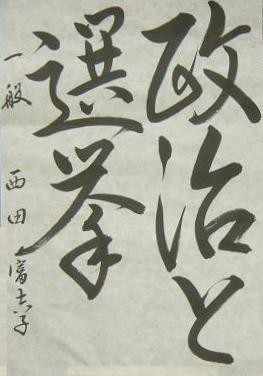 政治と
選挙
一般 西田富志子